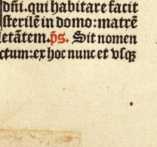 dñi. qui habitare facit
sterilē in domo: matrē
letātem. p̄s. Sit nomen
ctum: ex hoc nunc et vsq̄